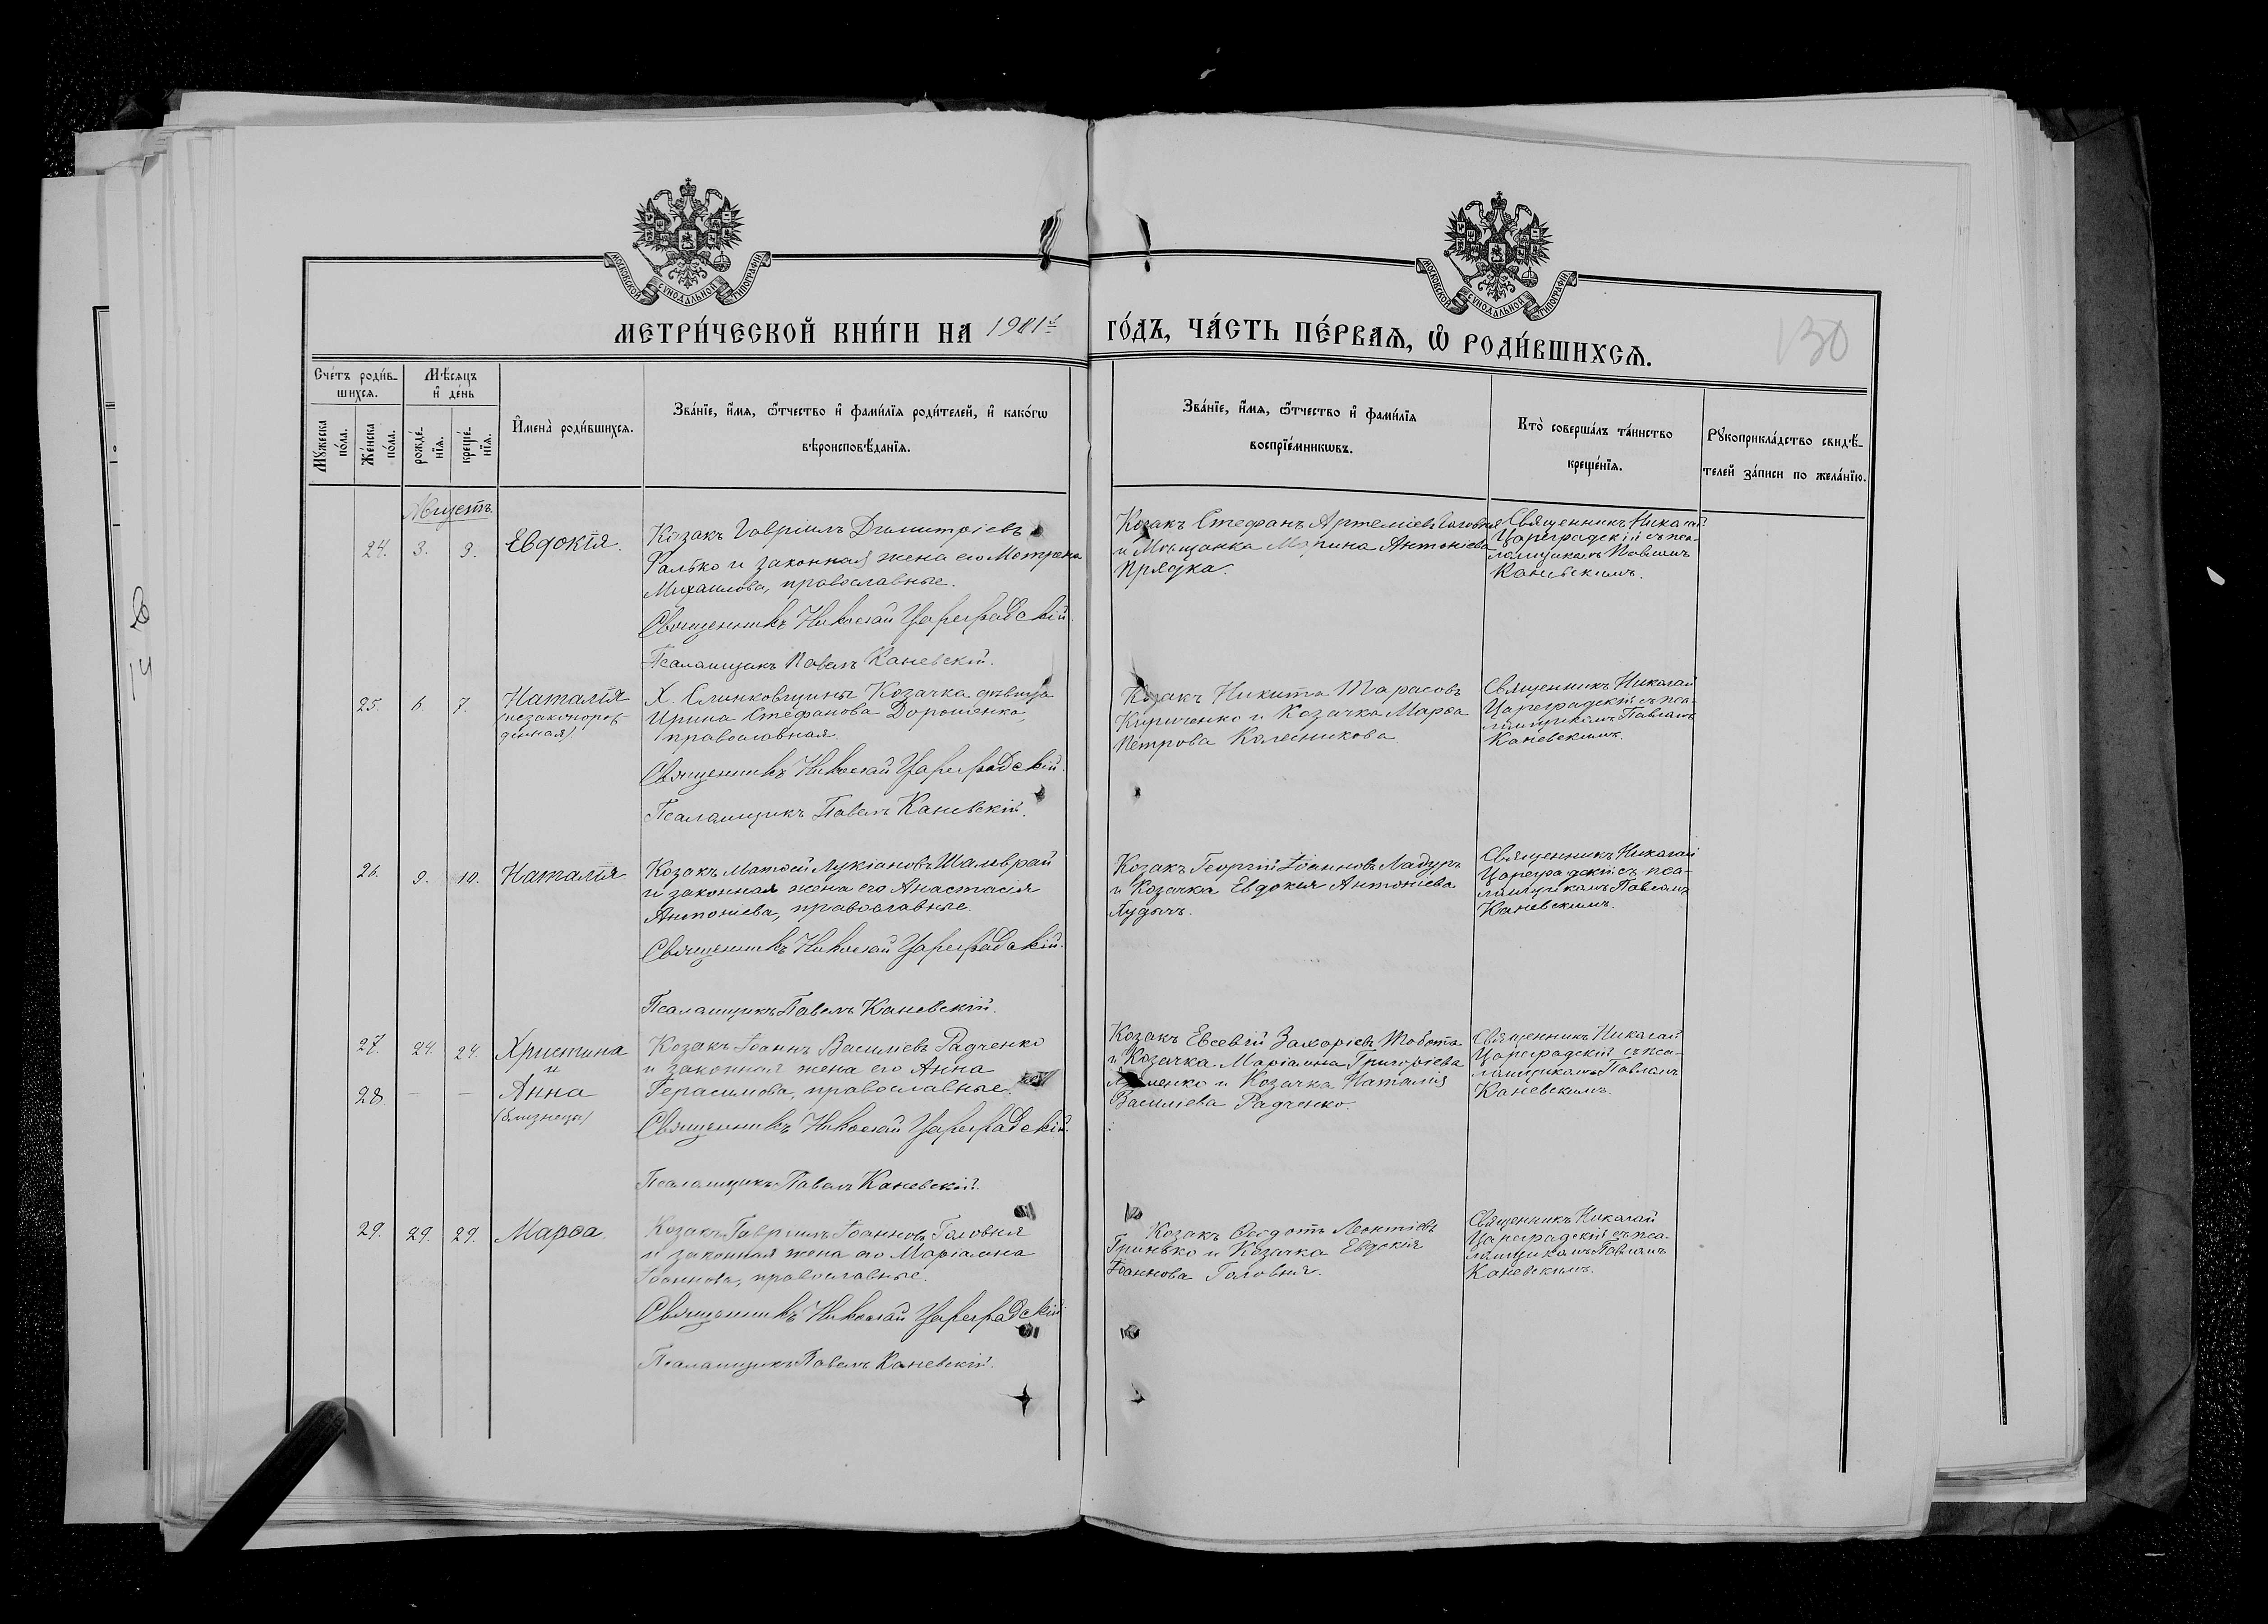 МОСКОВСКОЙ СѴНОДАЛЬНОЙ ТИПОГРАФІИ
МОСКОВСКОЙ СѴНОДАЛЬНОЙ ТИПОГРАФІИ
МЕТРИ́ЧЕСКОЙ КНИ́ГИ НА 1901й ГО́ДЪ, ЧА́СТЬ ПЕ́РВАѦ, Ѡ҆ РОДИ́ВШИХСѦ.
130
Сче́тъ роди́в-
шихсѧ.
Мѣ́сѧцъ
и҆ де́нь
Мꙋ́жеска
по́ла.
Же́нска
по́ла.
рожде́-
нїѧ.
креще́-
нїѧ.
И҆мена̀ роди́вшихсѧ.
Зва́нїе, и҆́мѧ, ѻ҆́тчество и҆ фами́лїѧ роди́телей, и҆ како́гѡ
вѣроисповѣ́данїѧ.
Зва́нїе, и҆́мѧ, ѻ҆́тчество и҆ фами́лїѧ
воспрїе́мникѡвъ.
Кто̀ соверша́лъ та́инство
креще́нїѧ.
Рꙋкоприкла́дство свидѣ́-
телей за́писи по жела́нїю.
Августъ.
24. 3. 9. Евдокія.
Козакъ Гавріилъ Димитріевъ
Фалько и законная жена его Матрона
Михаилова, православные.
Священникъ Николай Цареградскій.
Псаломщикъ Павелъ Каневскій.
Козакъ Стефанъ Артеміевъ Головня
и Мѣщанка Марина Антоніева
Прядка.
Священникъ Николай
Цареградскій съ пса-
ломщикомъ Павломъ
Каневскимъ.
25. 6. 7. Наталія
(незаконорож-
денная)
Х. Слинковщины Козачка дѣвица
Ирина Стефанова Дорошенко,
православная.
Священникъ Николай Цареградскій.
Псаломщикъ Павелъ Каневскій.
Козакъ Никита Тарасовъ
Кириченко и Козачка Марѳа
Петрова Колесникова
Священникъ Николай
Цареградскій съ пса-
ломщикомъ Павломъ
Каневскимъ.
26. 9. 10. Наталія
Козакъ Матѳей Лукіановъ Шамврай
и законная жена его Анастасія
Антоніева, православные.
Священникъ Николай Цареградскій.
Псаломщикъ Павелъ Каневскій.
Козакъ Георгій Іоанновъ
и Козачка Евдокія Антоніева
Священникъ Николай
Цареградскій съ пса-
ломщикомъ Павломъ
Каневскимъ.
27. 24. 24. Христина
и
28. — — Анна
(близнецы)
Козакъ Іоаннъ Василіевъ Радченко
и законная жена его Анна
Герасимова, православные.
Священникъ Николай Цареградскій.
Псаломщикъ Павелъ Каневскій.
Козакъ Евсевій Захаріевъ Товста
и Козачка Маріамна Григоріева
и Козачка Наталія
Василіева Радченко.
Священникъ Николай
Цареградскій съ пса-
ломщикомъ Павломъ
Каневскимъ.
29. 29. 29. Марѳа.
Козакъ Гавріилъ Іоанновъ Головня
и законная жена его Маріамна
Іоаннова, православные.
Священникъ Николай Цареградскій
Псаломщикъ Павелъ Каневскій.
Козакъ Ѳеодотъ Леонтіевъ
Гринько и Козачка Евдокія
Іоаннова Головня.
Священникъ Николай
Цареградскій съ пса-
ломщикомъ Павломъ
Каневскимъ.